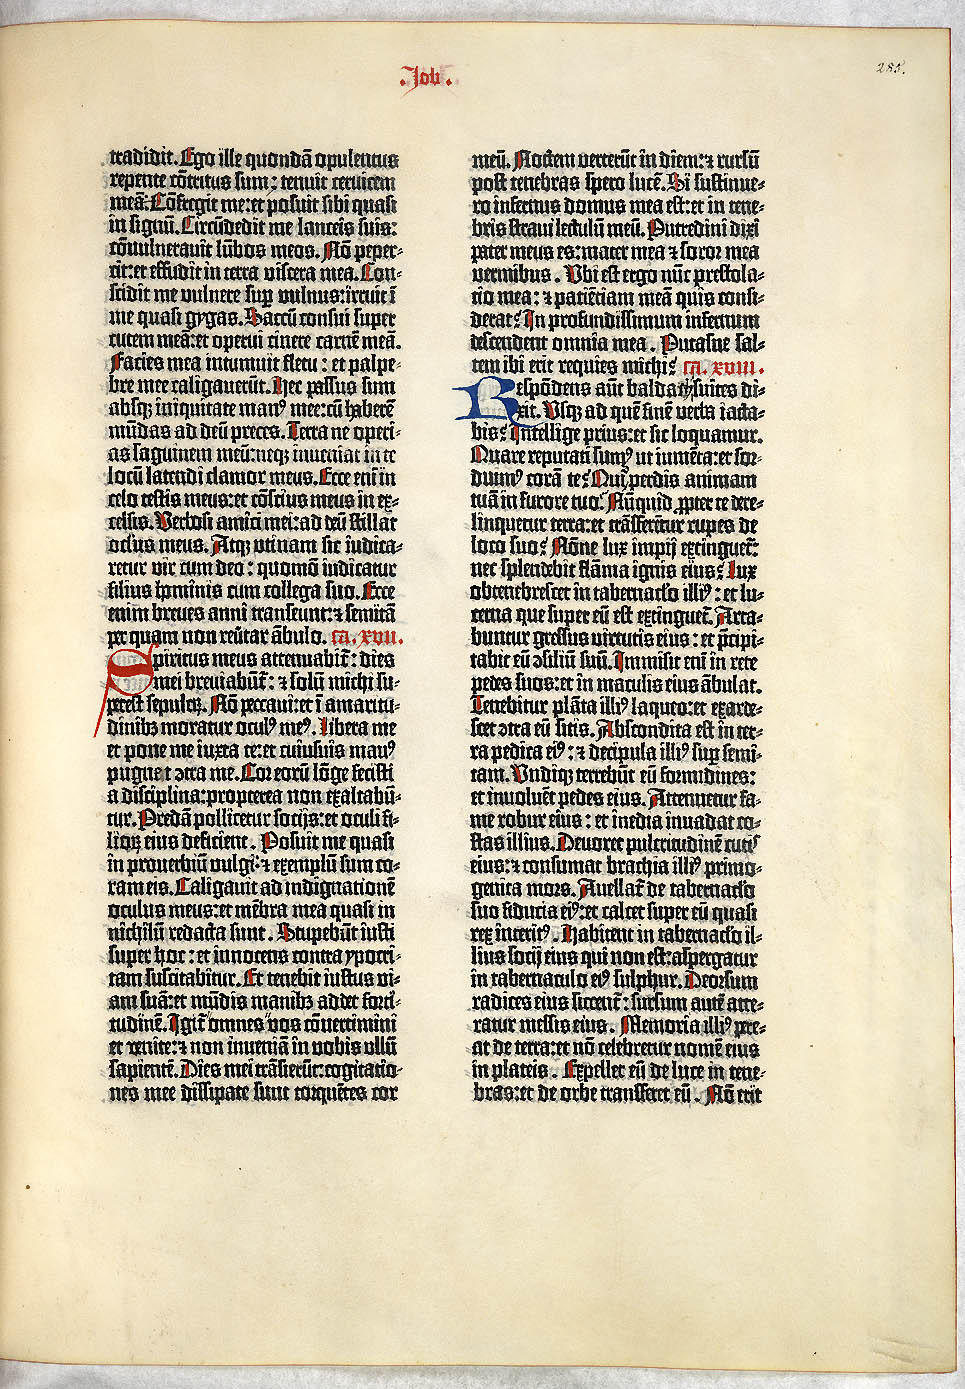 .Job.
285.
tradidit. Ego ille quondã opulentus
repente cõtritus sum: tenuit cervicem
meã. Cõfregit me: et posuit sibi quasi
in signũ. Circũdedit me lanceis suis:
cõvulneravit lũbos meos. Nõ peper-
cit: et effudit in terra viscera mea. Con-
scidit me vulnere sup vulnus: irruit ĩ
me quasi gygas. Saccũ consui super
cutem meã: et operui cinere carnẽ meã.
Facies mea intumuit fletu: et palpe-
bre mee caligaverũt. Hec passus sum
absqꝫ iniquitate manꝰ mee: cũ haberẽ
mũdas ad deũ preces. Terra ne operi-
as sãguinem meũ: neqꝫ inveniat in te
locũ latendi clamor meus. Ecce eni in
celo testis meus: et cõscius meus in ex-
celsis. Verbosi amici mei: ad deũ stillat
oclus meus. Atqꝫ utinam sic iudica-
retur vir cum deo: quomõ iudicatur
filius hominis cum collega suo. Ecce
enim breves anni transeunt: ⁊ semitã
per quam non revtar ãbulo. ca. xvii.
Spiritus meus attenuabit̃: dies
mei breviabũt̃: ⁊ solũ michi su-
perest sepulcꝝ. Nõ peccavi: et ĩ amaritu-
dinibꝫ moratur oculꝰ meꝰ. Libera me
et pone me iuxta te: et cuiusvis manꝰ
pugnet ↄtra me. Cor eorũ lõge fecisti
a disciplina: propterea non exaltabũ-
tur. Predã pollicetur socijs: et oculi fi-
lioꝝ eius deficient. Posuit me quasi
in proverbiũ vulgi: ⁊ exemplũ sum co-
ram eis. Caligavit ad indignationẽ
oculus meus: et mẽbra mea quasi in
nichilũ redacta sunt. Stupebũt iusti
super hoc: et innocens contra ypocri-
tam suscitabitur. Et tenebit iustus vi-
am suã: et mũdis manibꝫ addet forti-
tudinẽ. Igit̃ omnes vos cõvertimini
et venite: ⁊ non inveniã in vobis ullũ
sapientẽ. Dies mei trãsierũt: cogitatio-
nes mee dissipate sunt torquẽtes cor
meũ. Noctem verterũt in diem: ⁊ rursũ
post tenebras spero lucẽ. Si sustinue-
ro infernus domus mea est: et in tene-
bris stravi lectulũ meũ. Putredini dixi
pater meus es: mater mea ⁊ soror mea
vermibus. Ubi est ergo nũc prestola-
tio mea: ⁊ patiẽtiam meã quis consi-
derat? In profundissimum infernum
descendent omnia mea. Putasne sal-
tem ibi erit requies michi? ca. xviii.
Respõdens aũt baldath suites di-
xit. Usqꝫ ad quẽ finẽ verba iacta-
bis? Intellige prius: et sic loquamur.
Quare reputati sumꝰ ut iumẽta: et sor-
duimꝰ corã te? Qui perdis animam
tuã in furore tuo? Nũquid ꝓpter te dere-
linquetur terra: et trãsferẽtur rupes de
loco suo? Nõne lux impij extinguet̃:
nec splendebit flãma ignis eius? Lux
obtenebrescet in tabernaclo illiꝰ: et lu-
cerna que super eũ est extinguet̃. Arta-
buntur gressus virtutis eius: et p̃cipi-
tabit eũ ↄsiliũ suũ. Immisit eni in rete
pedes suos: et in maculis eius ãbulat.
Tenebitur plãta illiꝰ laqueo: et exarde-
scet ↄtra eũ sitis. Abscondita est in ter-
ra pedica eiꝰ: ⁊ decipula illiꝰ sup semi-
tam. Undiqꝫ terrebũt eũ formidines:
et involuẽt pedes eius. Attenuetur fa-
me robur eius: et inedia invadat co-
stas illius. Devoret pulcritudinẽ cutis
eius: ⁊ consumat brachia illiꝰ primo-
genita mors. Avellat̃ de tabernaclo
suo fiducia eiꝰ: et calcet super eũ quasi
rex interitꝰ. Habitent in tabernaclo il-
lius socij eius qui non est: aspergatur
in tabernaculo eiꝰ sulphur. Deorsum
radices eius siccent̃: sursum autẽ atte-
ratur messis eius. Memoria illiꝰ pre-
at de terra: et nõ celebretur nomẽ eius
in plateis. Expellet eũ de luce in tene-
bras: et de orbe transferet eũ. Nõ erit